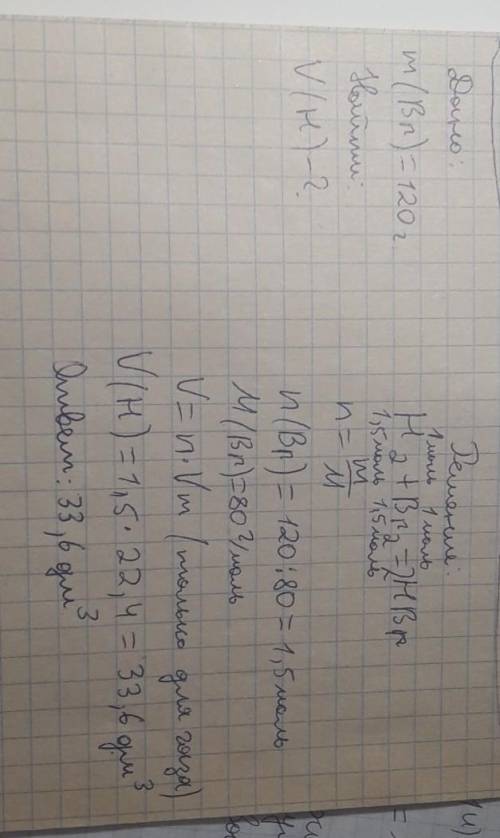 Дано:
m(Br)=120г
Найти:
V(H)-?
Решение:
1моль 1моль
H2+Br2=2HBr
1,5моль 1,5моль
n=m/M
n(Br)=120:80=1,5моль
M(Br)=80г/моль
V=n·Vm (только для газа)
V(H)=1,5·22,4=33,6дм³
Ответ: 33,6дм³